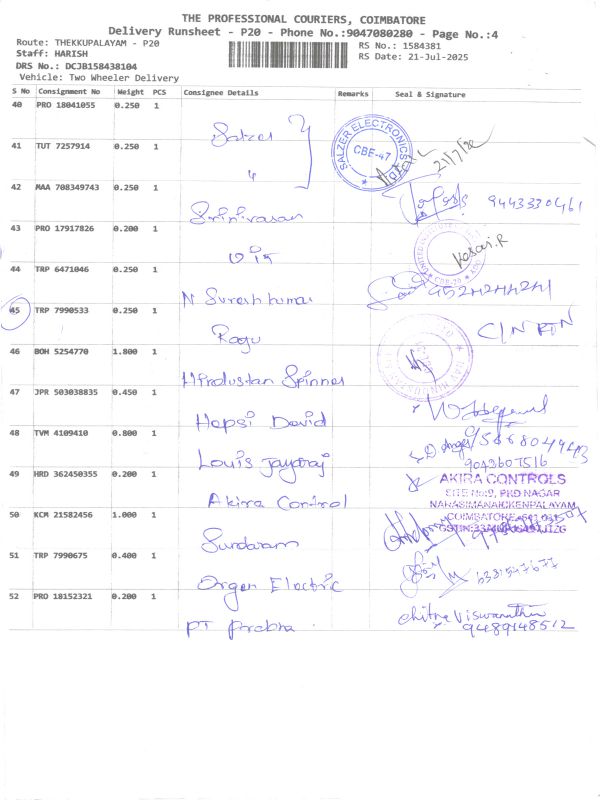 THE PROFESSIONAL COURIERS, COIMBATORE
Delivery Runsheet - P20 - Phone No.:9047080280 - Page No.:4
Route: THEKKUPALAYAM - P20
Staff: HARISH
DRS No.: DCJB158438104
Vehicle: Two Wheeler Delivery
RS No.: 1584381
RS Date: 21-Jul-2025
S No Consignment No Weight PCS Consignee Details Remarks Seal & Signature
40 PRO 18041055 0.250 1 Salzer
SALZER ELECTRONICS
CBE-47
41 TUT 7257914 0.250 1 "
42 MAA 708349743 0.250 1 Srinivasan 9443330461
43 PRO 17917826 0.200 1
44 TRP 6471046 0.250 1 N Suresh kumar
45 TRP 7990533 0.250 1 Ragu C/N RTN
46 BOH 5254770 1.800 1 Hindustan Spinner
47 JPR 503038835 0.450 1 Hepsi David
48 TVM 4109410 0.800 1 Louis Jayaraj
9043607516
49 HRD 362450355 0.200 1 Akira Control
AKIRA CONTROLS
SITE No.9, PKD NAGAR
NARASIMANAICKENPALAYAM
COIMBATORE-641 031
50 KCM 21582456 1.000 1 Sundaram
51 TRP 7990675 0.400 1 Organ Electric
52 PRO 18152321 0.200 1 PT Prabha Chitra Viswanathan
9489148512